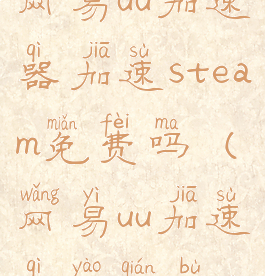 网易uu加速
qì jiā sù
器加速stea
miǎn fèi ma
m免费吗（
wǎng yì jiā sù
网易uu加速
qì yào qián bù